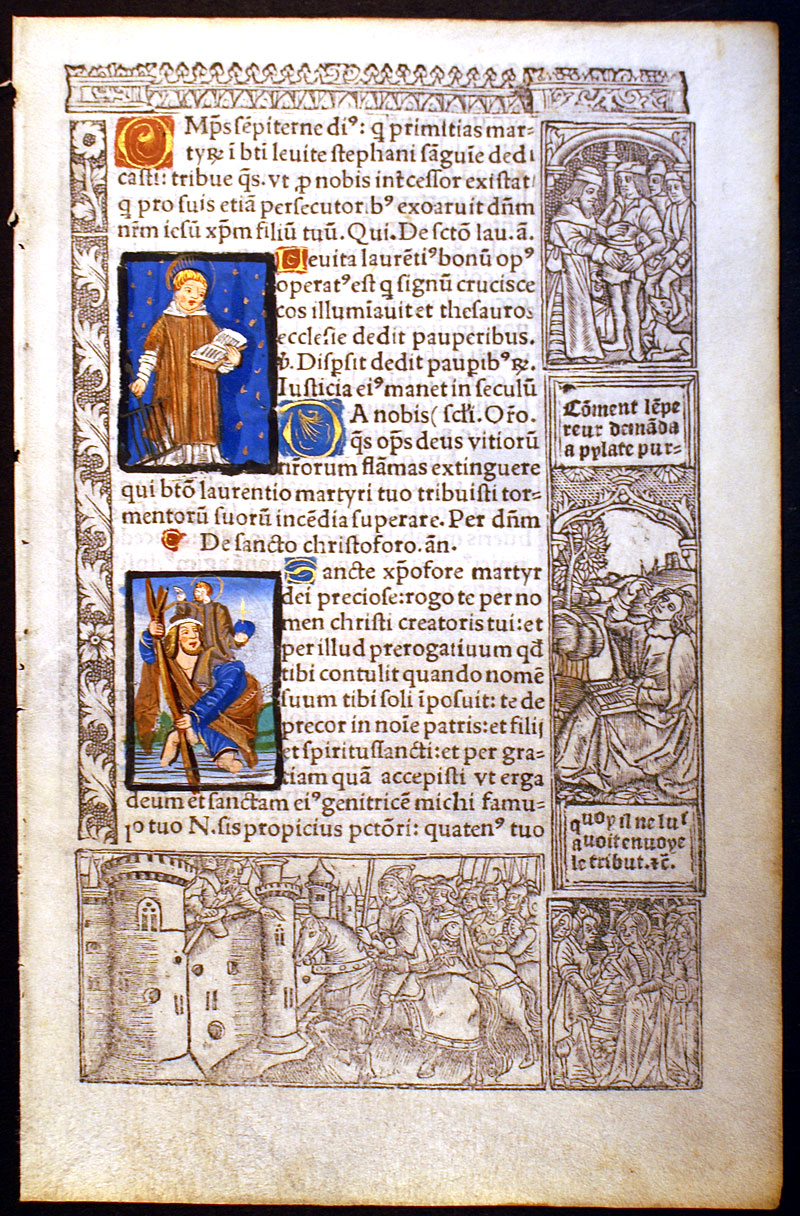 OMp̄s sēpiterne diꝰ: q̄ primitias mar=
tyꝝ ī bti leuite stephani sāguīe dedi
casti: tribue q̄s. vt ꝓ nobis intc̄essor existat
q pro suis etiā persecutoribꝰ exoravit dn̄m
nr̄m iesū xp̄m filiū tuū. Qui. De sctō lau. ā.
Leuita laurētiꝰ bonū opꝰ
operatꝰ est q signū crucis ce
cos illumīauit et thesauros
ecclesie dedit pauperibus.
℣. Disp̄sit dedit paupibꝰ ꝝ.
Iusticia eiꝰ manet in seculū
DA nobis ( sc̄li. Or̄o.
q̄s op̄s deus vitiorū
nr̄orum flāmas extinguere
qui btō laurentio martyri tuo tribuisti tor=
mentorū suorū incēdia superare. Per dn̄m
De sancto christoforo. ān.
Sancte xp̄ofore martyr
dei preciose: rogo te per no
men christi creatoris tui: et
per illud prerogatiuum qd̄
tibi contulit quando nomē
suum tibi soli īposuit: te de
precor in noīe patris: et filij
et spiritussancti: et per gra=
tiam quā accepisti vt erga
deum et sanctam eiꝰ genitricē michi famu=
lo tuo N. sis propicius pctōri: quatenꝰ tuo
Cōment lēpe
reur demāda
a pylate pur=
quoy il ne luy
auoit enuoye
le tribut. ⁊c̄.